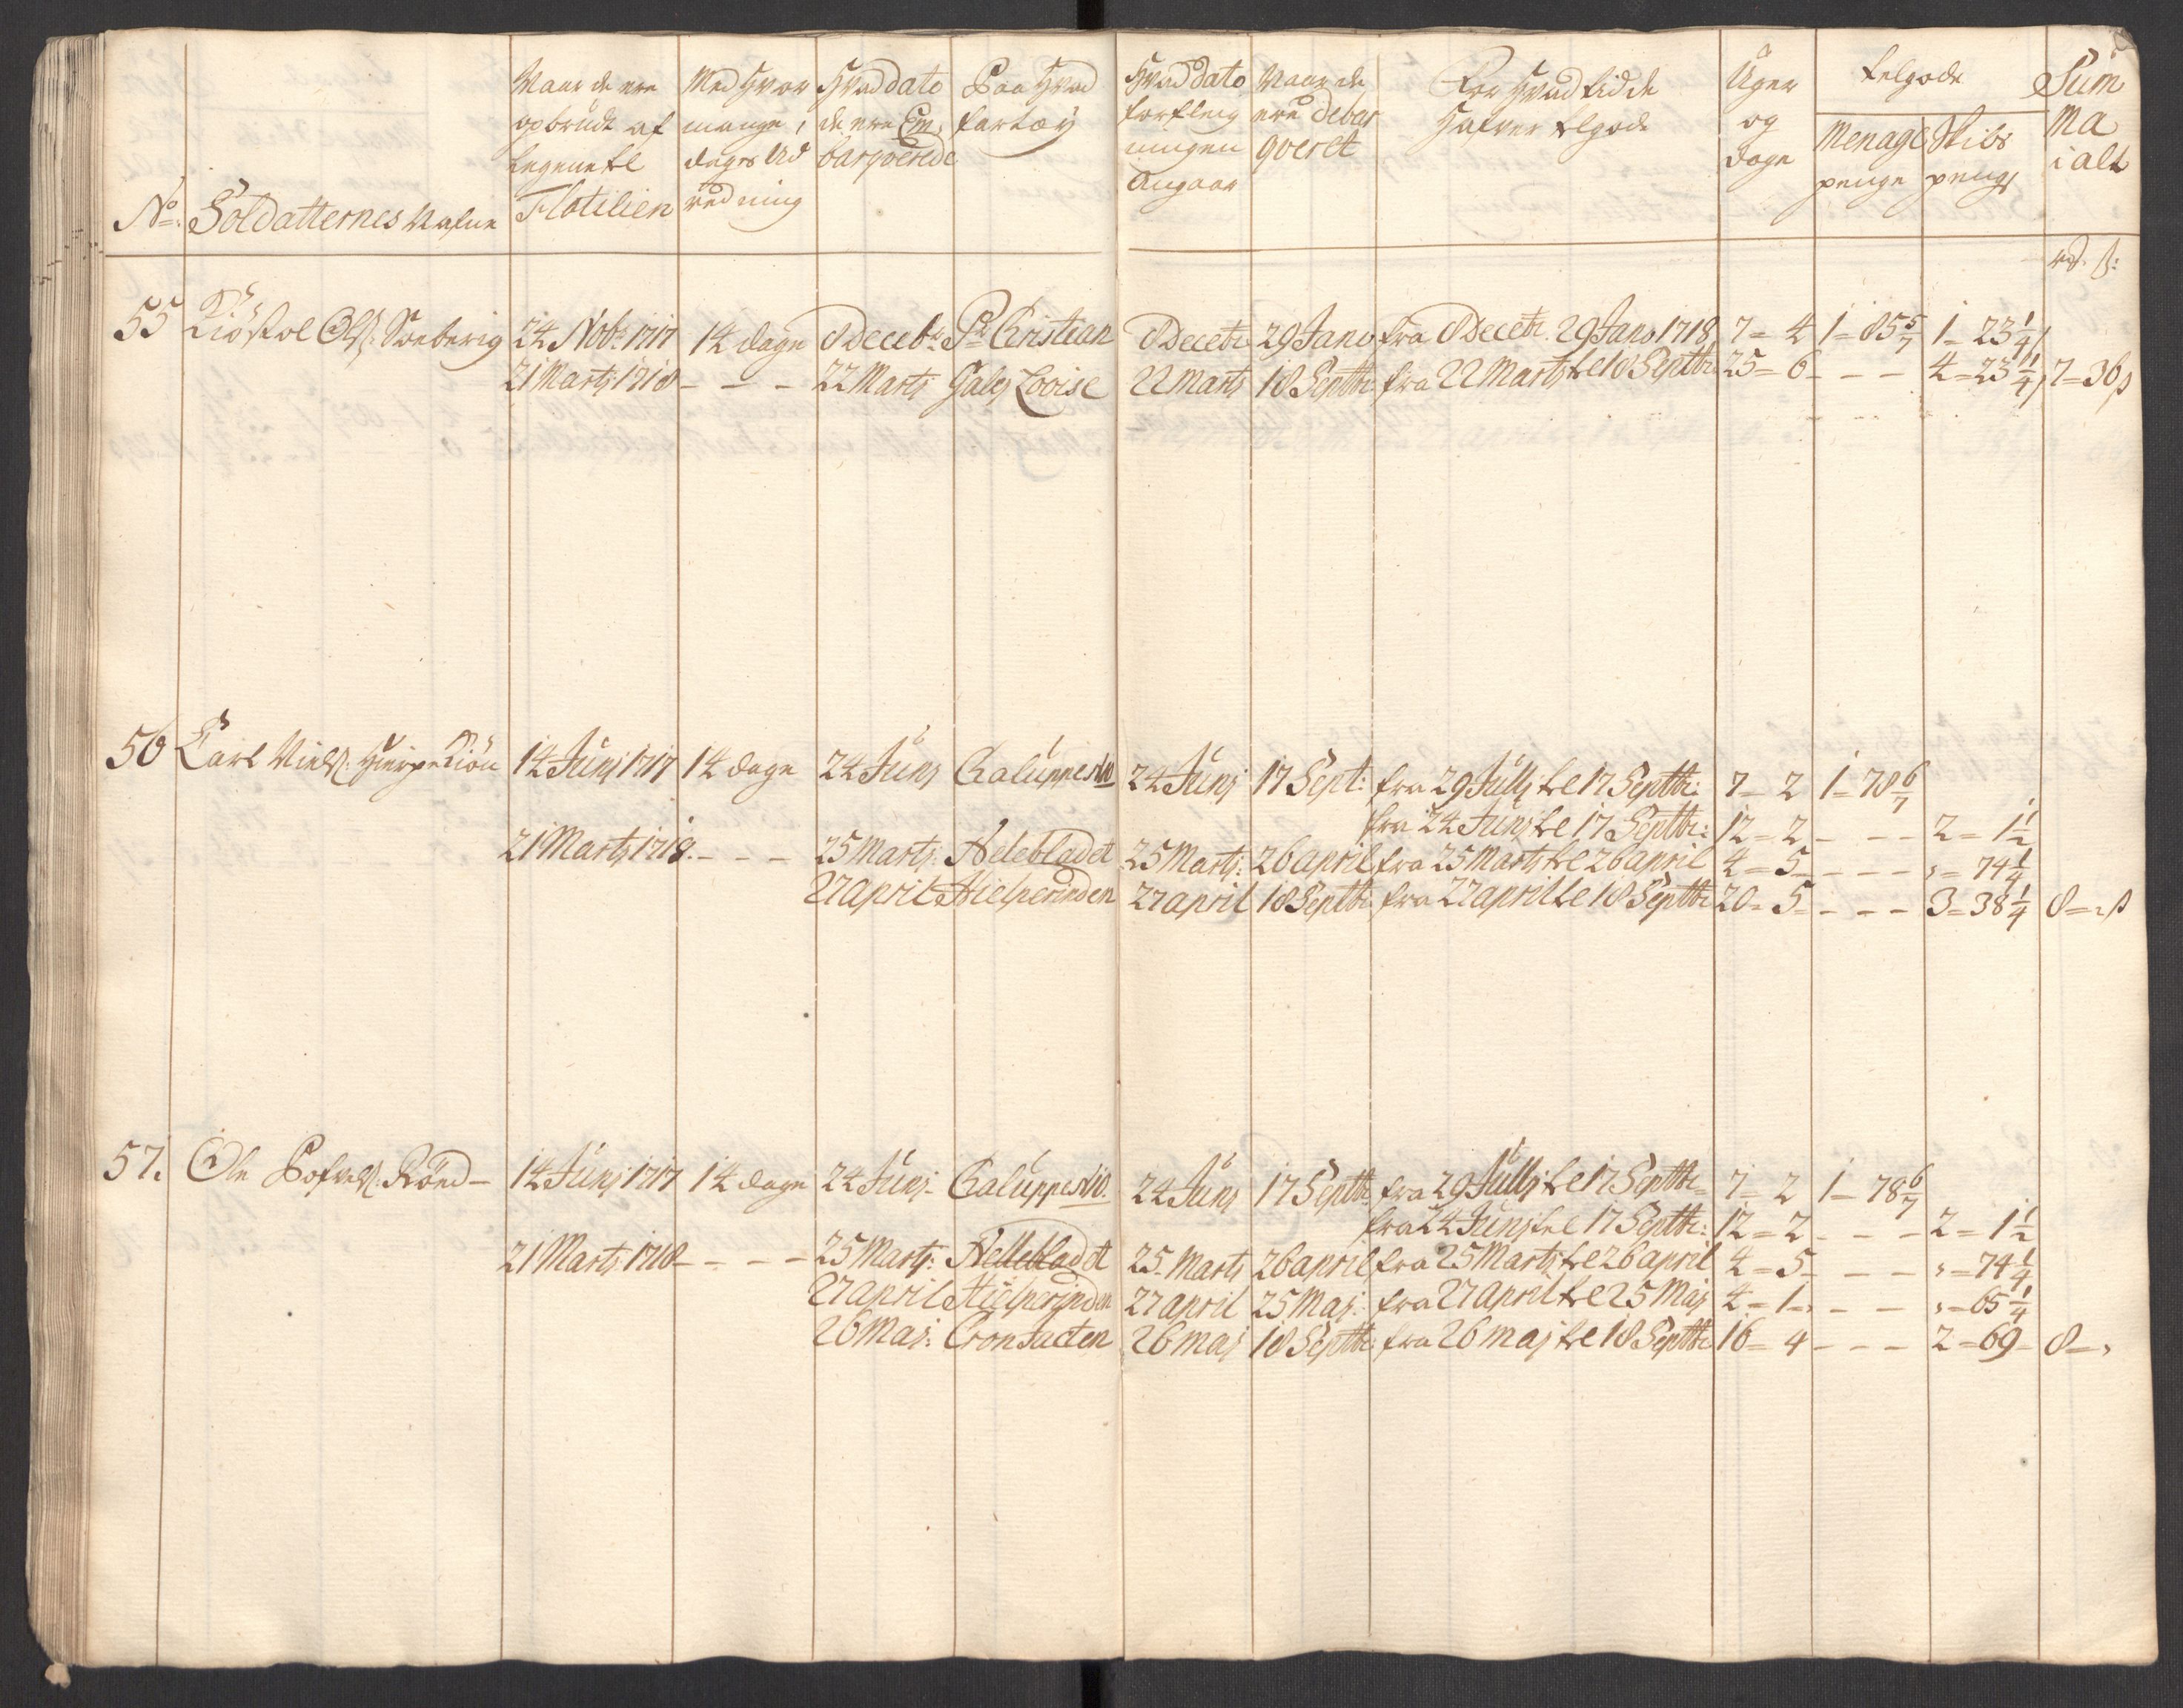 No: Soldatternes Nafne
Naar de ere opbrudt af Legene til Flotilien
Med hvor mange dages Udredning
Hvad dato de ere Embarqverede
Paa hvad fartøy
Hvad dato forpleigningen angaar
Naar de ere debarqveret
For hvad tid de hafver tilgode
Uger og dage
tilgode
Menage penge
Skibs penge
Summa i alt
rd. ß:
55 Olß: 24 Nobr: 1717 14 dage 8 Decebr: Pr: Christian 8 Decebr 29 Janv fra 8 Decebr. 29 Janv 1718 7=4 1=85 5/7 1=23 1/4
21 Martj 1718 - - - 22 Martj Galej Lovise 22 Martj 18 Septbr fra 22 Martj til 18 Septbr 25=6 - - - 4=23 1/4 7=36 ß
56 Carl Nielß: 14 Junj 1717 14 dage 24 Junj Galuppe No 24 Junj 17 Sept: fra 29 Julij til 17 Septbr: 7=2 1=78 6/7
fra 24 Junj til 17 Septbr: 12=2 - - - 2=1 1/2
21 Martj 1718. - - - 25 Martj: Nelebladet 25 Martj: 26 april fra 25 Martj til 26 april 4=5 - - - "=74 1/4
27 april Hielperinden 27 april 18 Septbr fra 27 april til 18 Septbr 20=5 - - - 3=38 1/4 8= " ß
57. Ole 14 Junj 1717 14 dage 24 Junj Galuppe No. 24 Junj 17 Septbr fra 29 Julij til 17 Septbr 7=2 1=78 6/7
fra 24 Junj til 17 Septbr: 12=2 - - - 2=1 1/2
21 Martj 1718 - - - 25 Martj: Nellebladet 25 Martj 26 april fra 25 Martj til 26 april 4=5 - - - "=74 1/4
27 april Hielperinden 27 april 25 Maj: fra 27 april til 25 Maj 4=1 - - - "=65 1/4
26 Maj: Cron Jacten 26 maj 18 Septbr: fra 26 maj til 18 Septbr 16=4 - - - 2=69 8= "